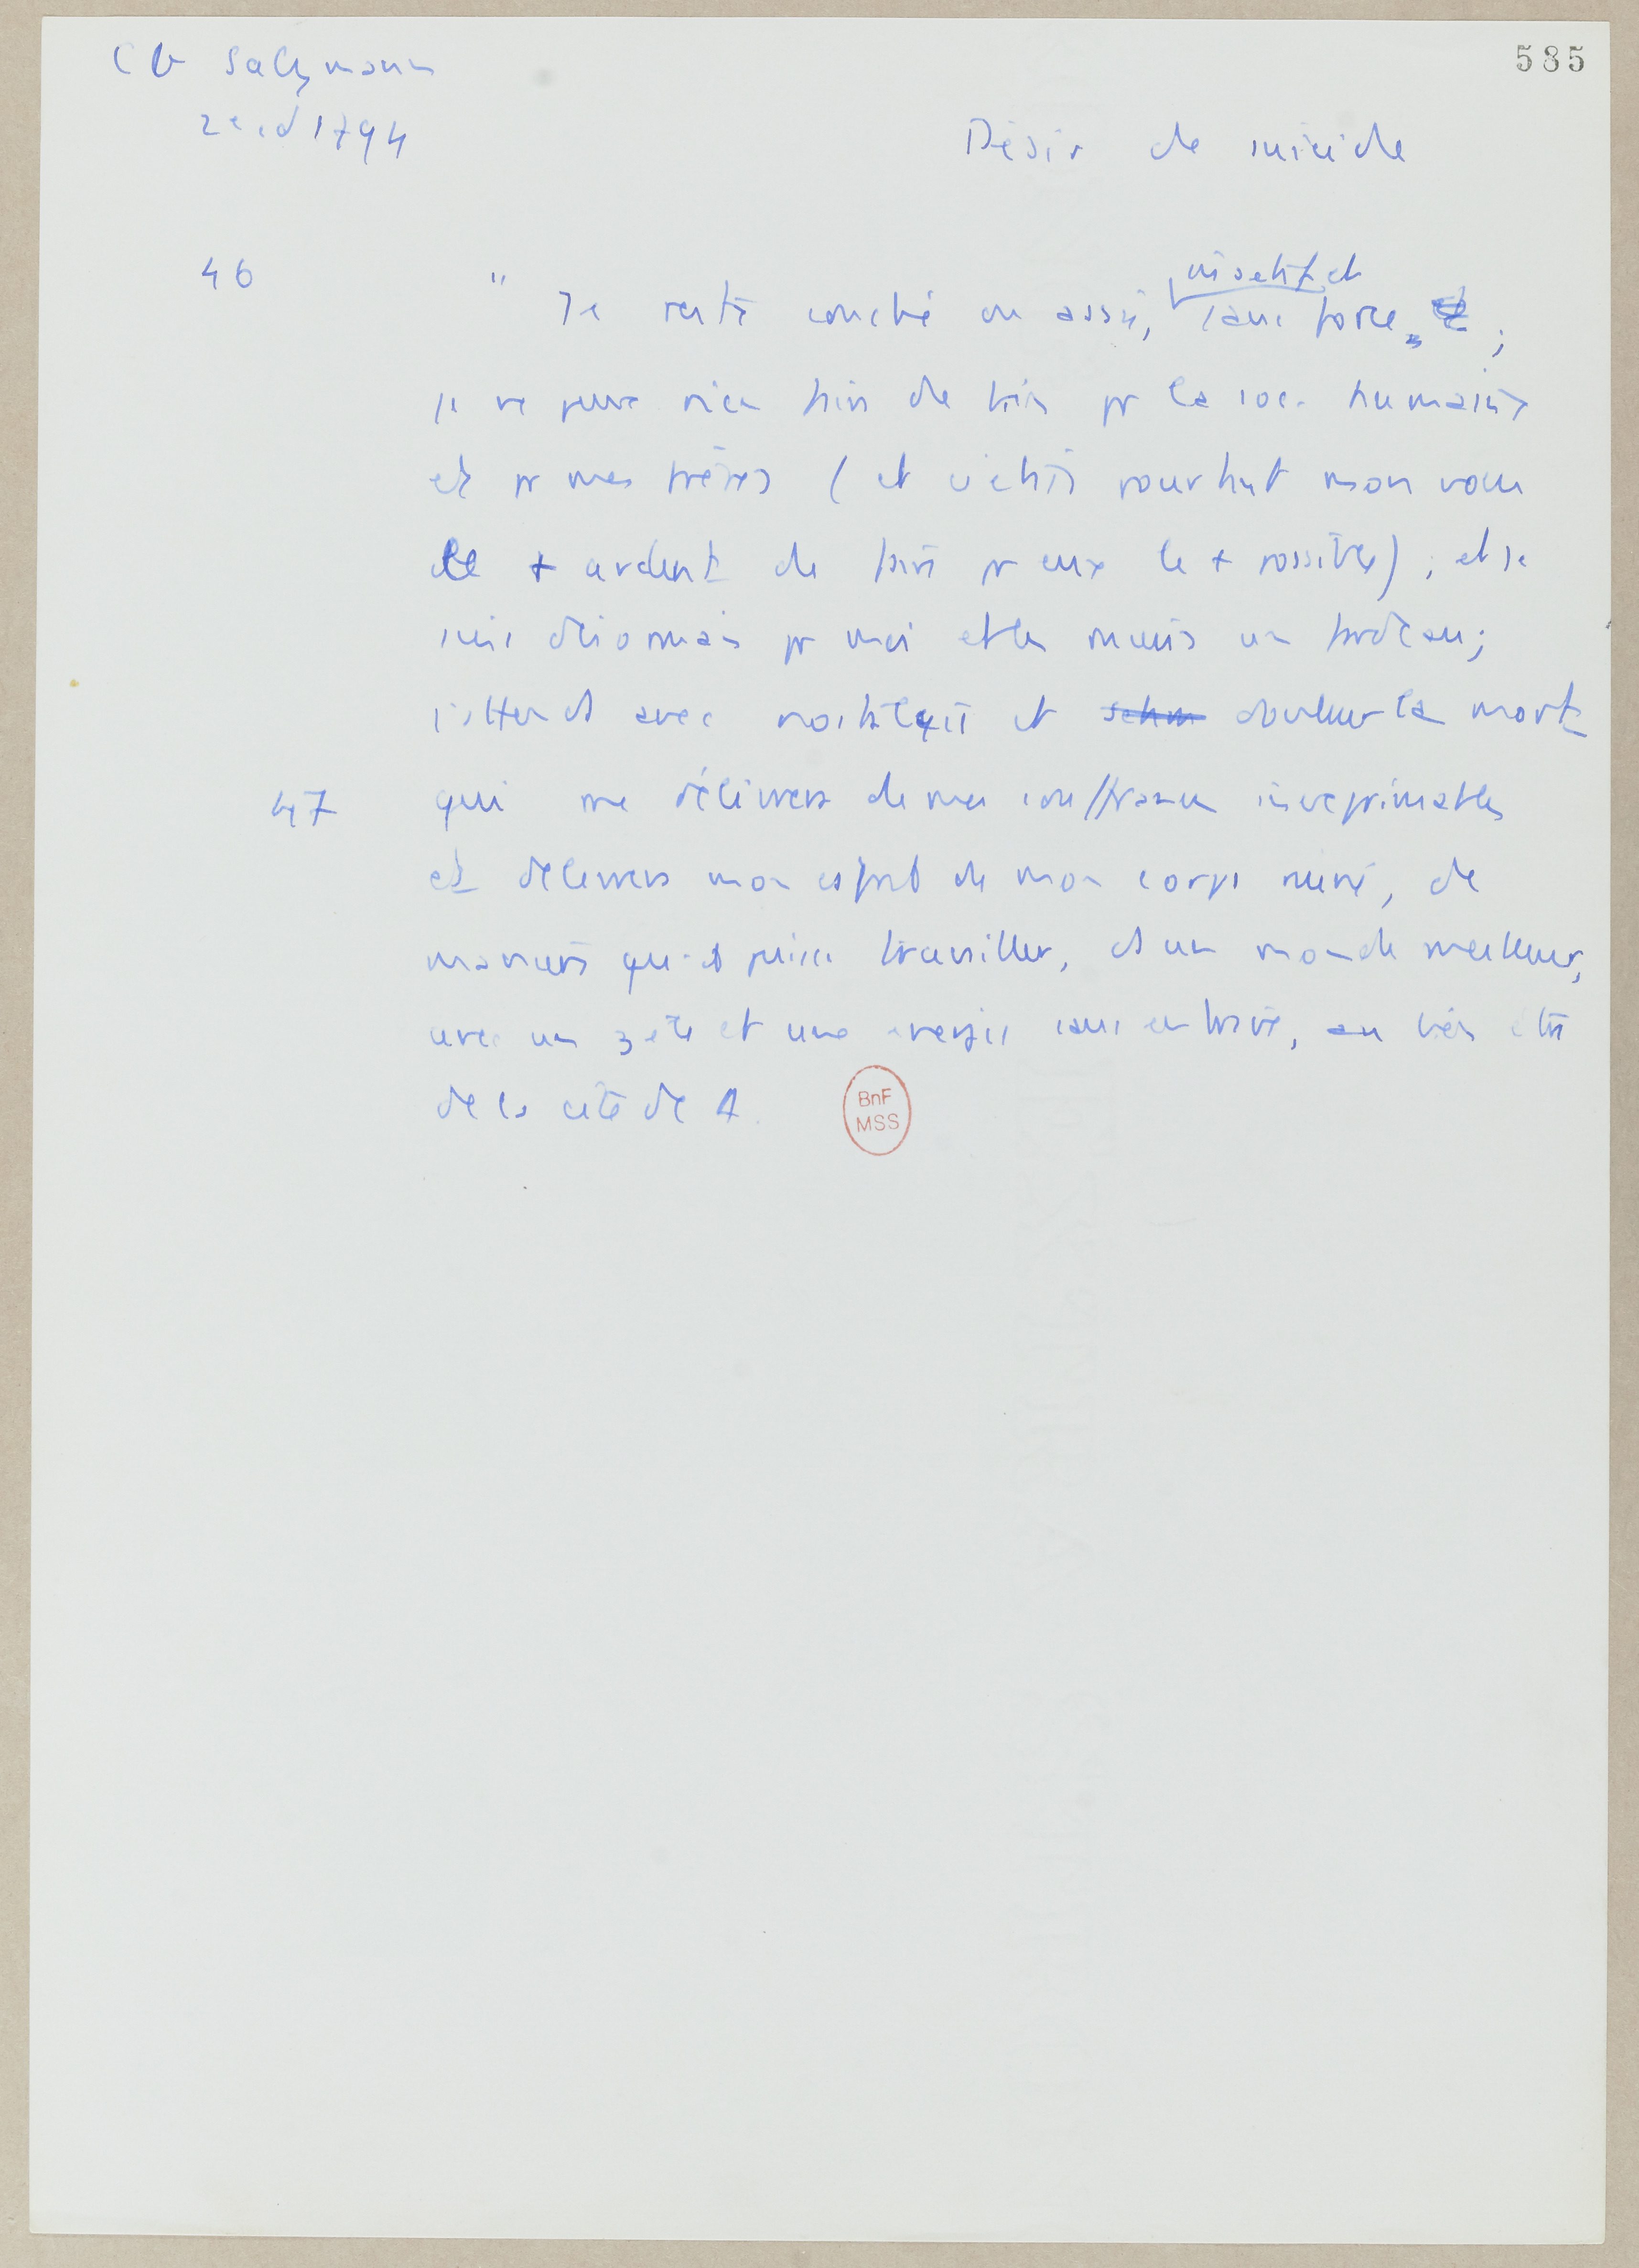 CG Salzmann
2e ed 1794
585
Désir de suicide
46
inactif et
" Je reste couché ou assis, sans force ;
je ne peux rien faire de bien pr la soc. humaine
et pr mes frères (et c'était pourtant mon voeu
le + ardent de faire pr eux le + possible) ; et je
suis désormais pr moi et les miens un fardeau ;
j'attends avec nostalgie et douleur la mort
47
qui me délivrera de mes souffrances inexprimables
et délivrera mon esprit de mon corps ruiné, de
manière qu' puisse travailler, ds un monde meilleur,
avec un zèle et une énergie sans entrave, au bien être
de la cité de
BnF
MSS